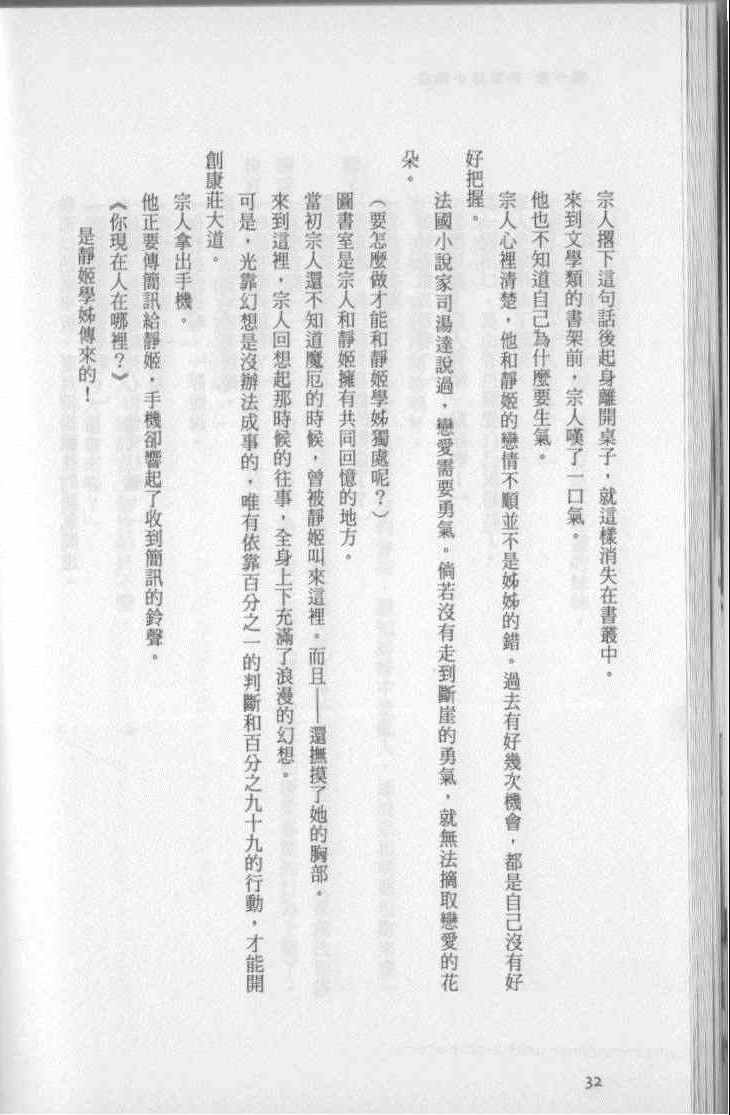 宗人撂下這句話後起身離開桌子，就這樣消失在書叢中。
來到文學類的書架前，宗人嘆了一口氣。
他也不知道自己為什麼要生氣。
宗人心裡清楚，他和靜姬的戀情不順並不是姊姊的錯。過去有好幾次機會，都是自己沒有好
好把握。
法國小說家司湯達說過，戀愛需要勇氣。倘若沒有走到斷崖的勇氣，就無法摘取戀愛的花
朵。
（要怎麼做才能和靜姬學姊獨處呢？）
圖書室是宗人和靜姬擁有共同回憶的地方。
當初宗人還不知道魔厄的時候，曾被靜姬叫來這裡。而且——還撫摸了她的胸部。
來到這裡，宗人回想起那時候的往事，全身上下充滿了浪漫的幻想。
可是，光靠幻想是沒辦法成事的，唯有依靠百分之一的判斷和百分之九十九的行動，才能開
創康莊大道。
宗人拿出手機。
他正要傳簡訊給靜姬，手機卻響起了收到簡訊的鈴聲。
《你現在人在哪裡？》
是靜姬學姊傳來的！
32